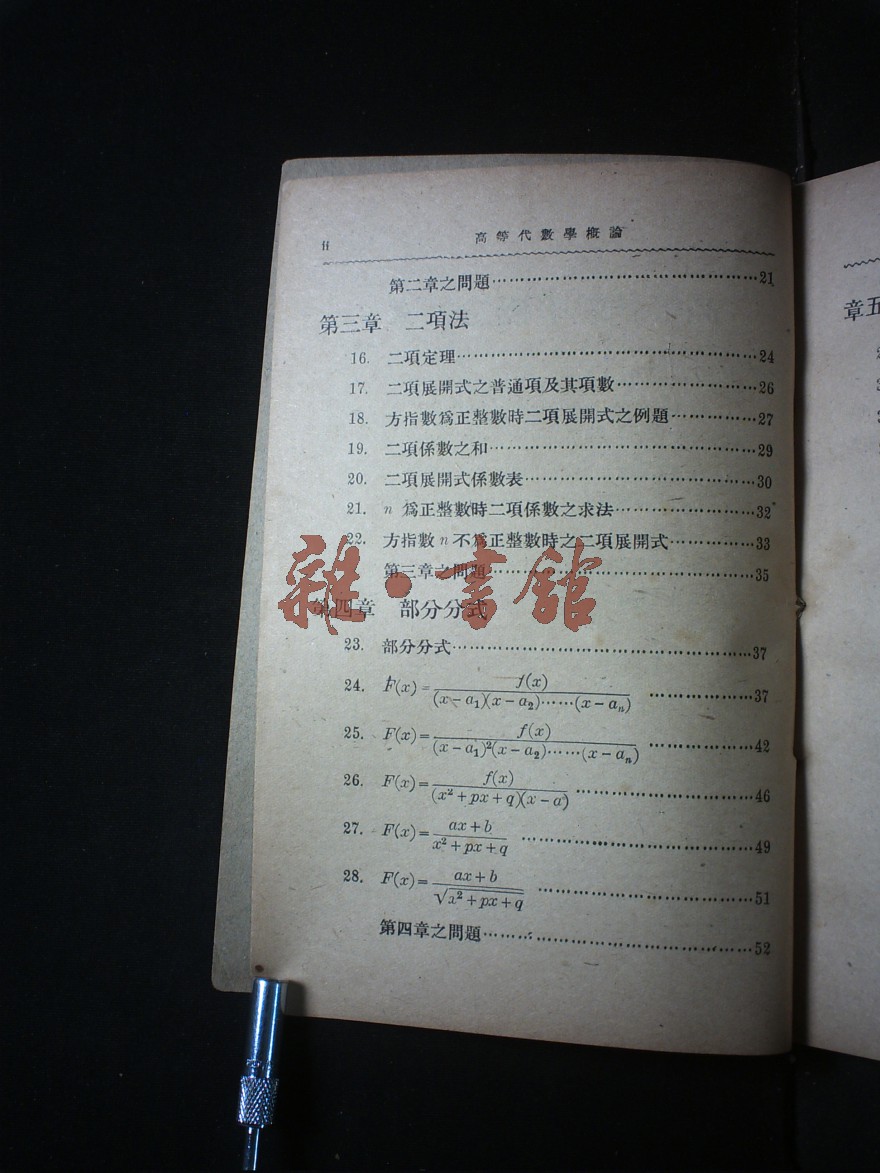 ff 高等代數學概論
第二章之問題………………………………………21
第三章 二項法
16. 二項定理………………………………………24
17. 二項展開式之普通項及其項數………………26
18. 方指數爲正整數時二項展開式之例題…………27
19. 二項係數之和…………………………………29
20. 二項展開式係數表……………………………30
21. n 爲正整數時二項係數之求法…………………32
22. 方指數 n 不爲正整數時之二項展開式…………33
第三章之問題………………………………………35
第四章 部分分式
雜·書館
23. 部分分式………………………………………37
24. F(x)=f(x)/(x-a₁)(x-a₂)……(x-aₙ) ………………37
25. F(x)=f(x)/(x-a₁)²(x-a₂)……(x-aₙ) ………………42
26. F(x)=f(x)/(x²+px+q)(x-a) ………………………46
27. F(x)=ax+b/x²+px+q ………………………………49
28. F(x)=ax+b/√x²+px+q ………………………………51
第四章之問題………………………………………52
章五